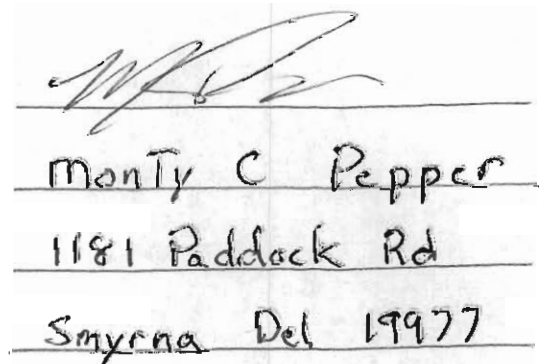 Monty C Pepper
1181 Paddock Rd
Smyrna Del 19977